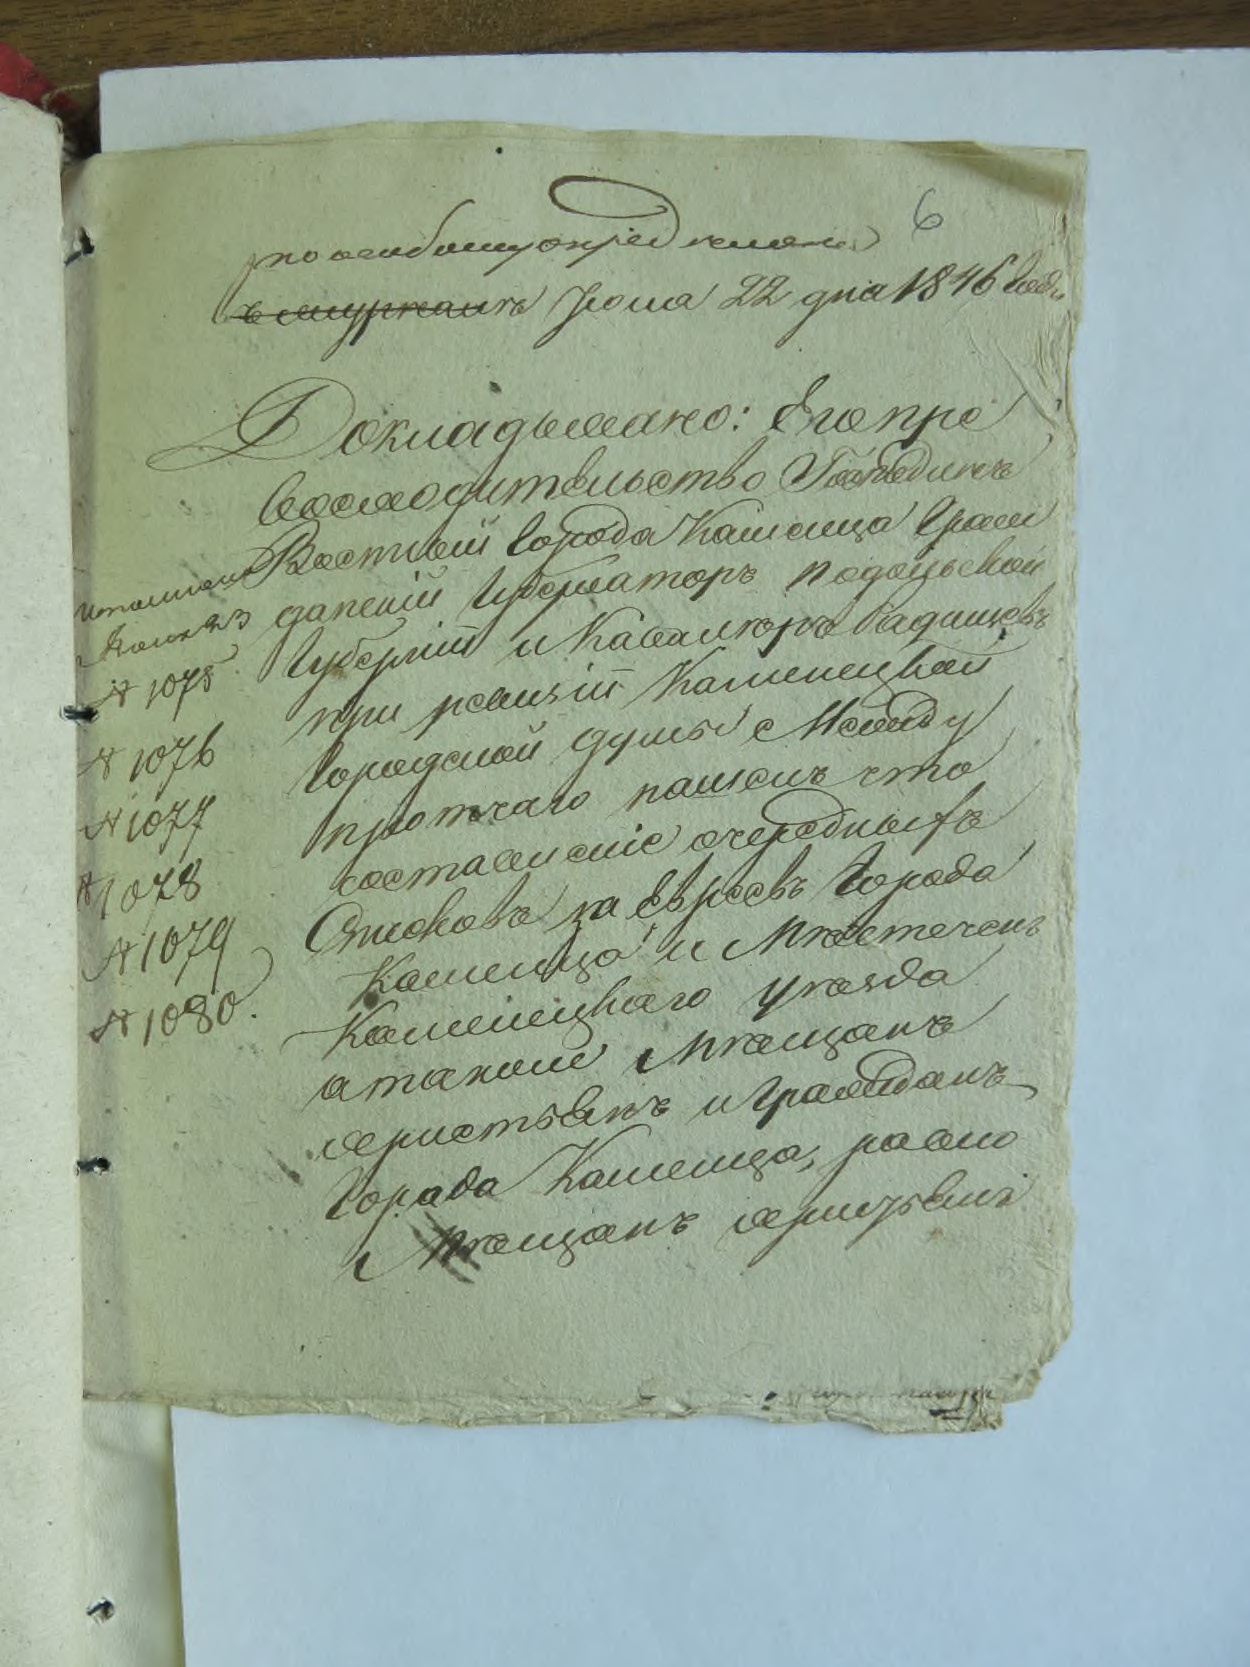 6
по особому определению
в журнале Июня 22 дня 1846 Года
Докладывано: Его пре
восходительство Господинъ
Военный Города Каменца Граж
данскій Губернаторъ Подольской
Губерніи и Кавалеръ Радищевъ
при ревизіи Каменецкой
Городской думы Между
протчаго нашелъ что
составленіе очередныхъ
Списковъ на Евреевъ Города
Каменца и Местечекъ
Каменецкаго уезда
а также Мещанъ
христьянъ и Гражданъ
Города Каменца, равно
Мещанъ христьянъ
исполнено
Іюня 23
№ 1075
№ 1076
№ 1077
№ 1078
№ 1079
№ 1080.